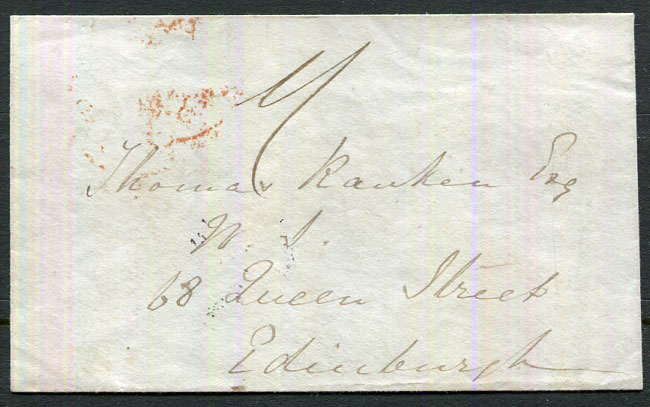 Thomas Ranken Esq
W. S.
68 Queen Street
Edinburgh